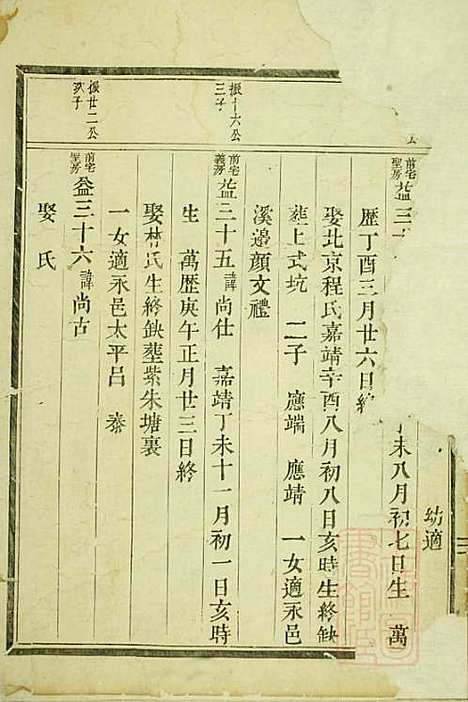 幼適
前宅聖房 益三十 丁未八月初七日生 萬
歷丁酉三月廿六日終
娶北京程氏嘉靖辛酉八月初八日亥時生終缺
塟上式坑 二子 應端 應靖 一女適永邑
溪邉顏文禮
振十六公三子
前宅義房 益三十五 諱尚仕 嘉靖丁未十一月初一日亥時
生 萬歷庚午正月廿三日終
娶林氏生終缺塟紫朱塘裏
一女適永邑太平吕 泰
振廿二公 子
前宅聖房 益三十六 諱尚古
娶 氏